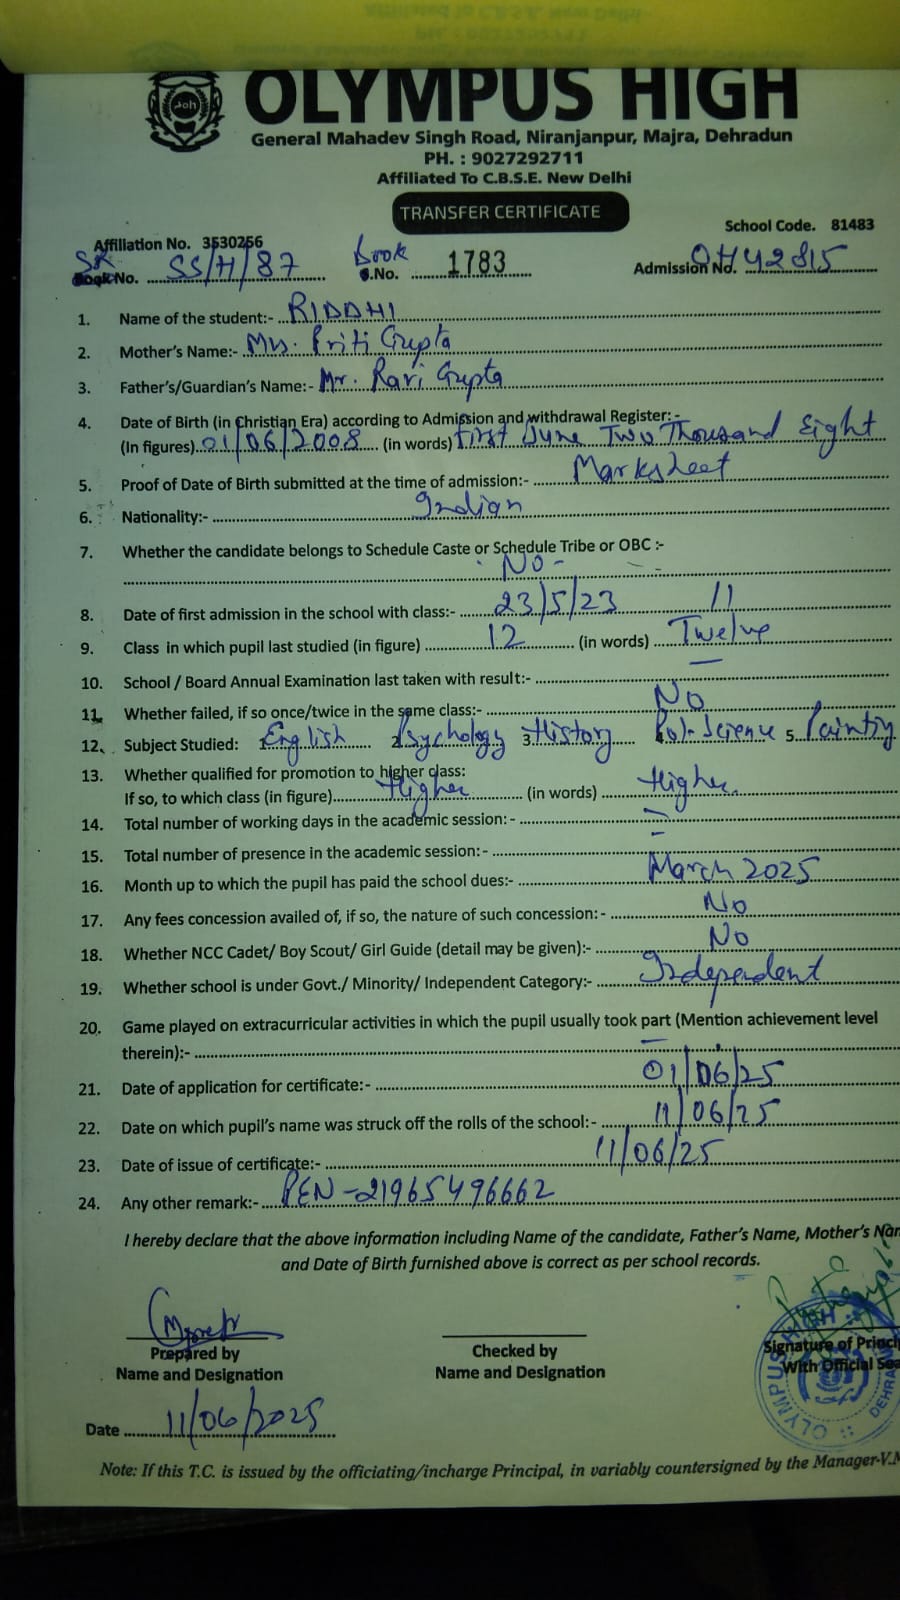 OLYMPUS HIGH
General Mahadev Singh Road, Niranjanpur, Majra, Dehradun
PH. : 9027292711
Affiliated To C.B.S.E. New Delhi
TRANSFER CERTIFICATE
School Code. 81483
Affiliation No. 3530256
No. SS/H/87 Book S.No. 1783 Admission No. OH42815
1. Name of the student:- RIDDHI
2. Mother's Name:- Mrs. Priti Gupta
3. Father's/Guardian's Name:- Mr. Ravi Gupta
4. Date of Birth (in Christian Era) according to Admission and withdrawal Register:-
(In figures) 01/06/2008 (in words) First June Two Thousand Eight
5. Proof of Date of Birth submitted at the time of admission:- Marksheet
6. Nationality:- Indian
7. Whether the candidate belongs to Schedule Caste or Schedule Tribe or OBC :-
No -
8. Date of first admission in the school with class:- 23/5/23 11
9. Class in which pupil last studied (in figure) 12 (in words) Twelve
10. School / Board Annual Examination last taken with result:- —
11. Whether failed, if so once/twice in the same class:- No
12. Subject Studied: 1 English 2 Psychology 3 History 4 Pol. Science 5. Painting
13. Whether qualified for promotion to higher class:
If so, to which class (in figure) Higher (in words) Higher.
14. Total number of working days in the academic session: - —
15. Total number of presence in the academic session:- —
16. Month up to which the pupil has paid the school dues:- March 2025
17. Any fees concession availed of, if so, the nature of such concession: - No
18. Whether NCC Cadet/ Boy Scout/ Girl Guide (detail may be given):- No
19. Whether school is under Govt./ Minority/ Independent Category:- Independent
20. Game played on extracurricular activities in which the pupil usually took part (Mention achievement level
therein):- —
21. Date of application for certificate:- 01/06/25
22. Date on which pupil's name was struck off the rolls of the school:- 11/06/25
23. Date of issue of certificate:- 11/06/25
24. Any other remark:- PEN - 21965496662
I hereby declare that the above information including Name of the candidate, Father's Name, Mother's Nam
and Date of Birth furnished above is correct as per school records.
Prepared by
Name and Designation
Checked by
Name and Designation
Signature of Princi
With Official Sea
OLYMPUS HIGH DEHRA
Date 11/06/2025
Note: If this T.C. is issued by the officiating/incharge Principal, in variably countersigned by the Manager-V.M